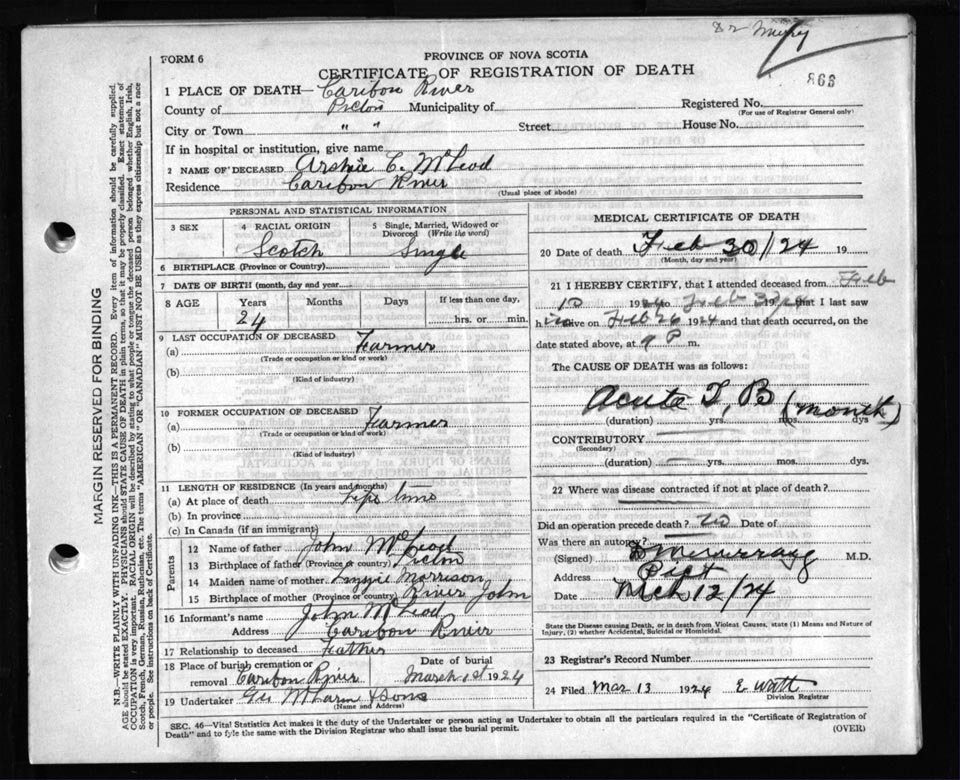 Dr Murray
868
FORM 6
PROVINCE OF NOVA SCOTIA
CERTIFICATE OF REGISTRATION OF DEATH
1 PLACE OF DEATH— Caribou River
County of Pictou Municipality of Registered No.
(For use of Registrar General only)
City or Town " " Street House No.
If in hospital or institution, give name
2 NAME OF DECEASED Archie C. McLeod
Residence Caribou River
(Usual place of abode)
PERSONAL AND STATISTICAL INFORMATION
3 SEX 4 RACIAL ORIGIN 5 Single, Married, Widowed or Divorced (Write the word)
Scotch Single
6 BIRTHPLACE (Province or Country)
7 DATE OF BIRTH (month, day and year)
8 AGE Years Months Days If less than one day,
24 hrs. or min.
9 LAST OCCUPATION OF DECEASED
(a) Farmer
(Trade or occupation or kind of work)
(b)
(Kind of industry)
10 FORMER OCCUPATION OF DECEASED
(a) Farmer
(Trade or occupation or kind of work)
(b)
(Kind of industry)
11 LENGTH OF RESIDENCE (In years and months)
(a) At place of death Life time
(b) In province
(c) In Canada (if an immigrant)
Parents
12 Name of father John McLeod
13 Birthplace of father (Province or country) Pictou
14 Maiden name of mother Lizzie Morrison
15 Birthplace of mother (Province or country) River John
16 Informant's name John McLeod
Address Caribou River
17 Relationship to deceased Father
18 Place of burial cremation or removal Caribou River Date of burial March 1st 1924
19 Undertaker Geo McLarn & Sons
(Name and Address)
MEDICAL CERTIFICATE OF DEATH
20 Date of death Feb 30/24 19
(Month, day and year)
21 I HEREBY CERTIFY, that I attended deceased from Feb
10 1924 to Feb 19 that I last saw
h im alive on Feb 26 1924 and that death occurred, on the
date stated above, at 9 P m.
The CAUSE OF DEATH was as follows:
Acute T, B (month)
(duration) yrs. mos. dys
CONTRIBUTORY
(Secondary)
(duration) yrs. mos. dys.
22 Where was disease contracted if not at place of death?
Did an operation precede death? no Date of
Was there an autopsy?
(Signed) Murray M.D.
Address Pict
Date Mch 12/24
State the Disease causing Death, or in death from Violent Causes, state (1) Means and Nature of Injury, (2) whether Accidental, Suicidal or Homicidal.
23 Registrar's Record Number
24 Filed Mar 13 1924 E Watt
Division Registrar
SEC. 46—Vital Statistics Act makes it the duty of the Undertaker or person acting as Undertaker to obtain all the particulars required in the "Certificate of Registration of
Death" and to fyle the same with the Division Registrar who shall issue the burial permit. (OVER)
MARGIN RESERVED FOR BINDING
N.B.—WRITE PLAINLY WITH UNFADING INK—THIS IS A PERMANENT RECORD. Every item of information should be carefully supplied.
AGE should be stated EXACTLY. PHYSICIANS should STATE CAUSE OF DEATH in plain terms, so that it may be properly classified. Exact statement of
OCCUPATION is very important. RACIAL ORIGIN will be described by stating to what people or tongue the deceased person belonged whether English, Irish,
Scotch, French, German, Russian, Ruthenian, etc. The terms "AMERICAN" OR "CANADIAN" MUST NOT BE USED as they express citizenship but not a race
or people. See instructions on back of Certificate.